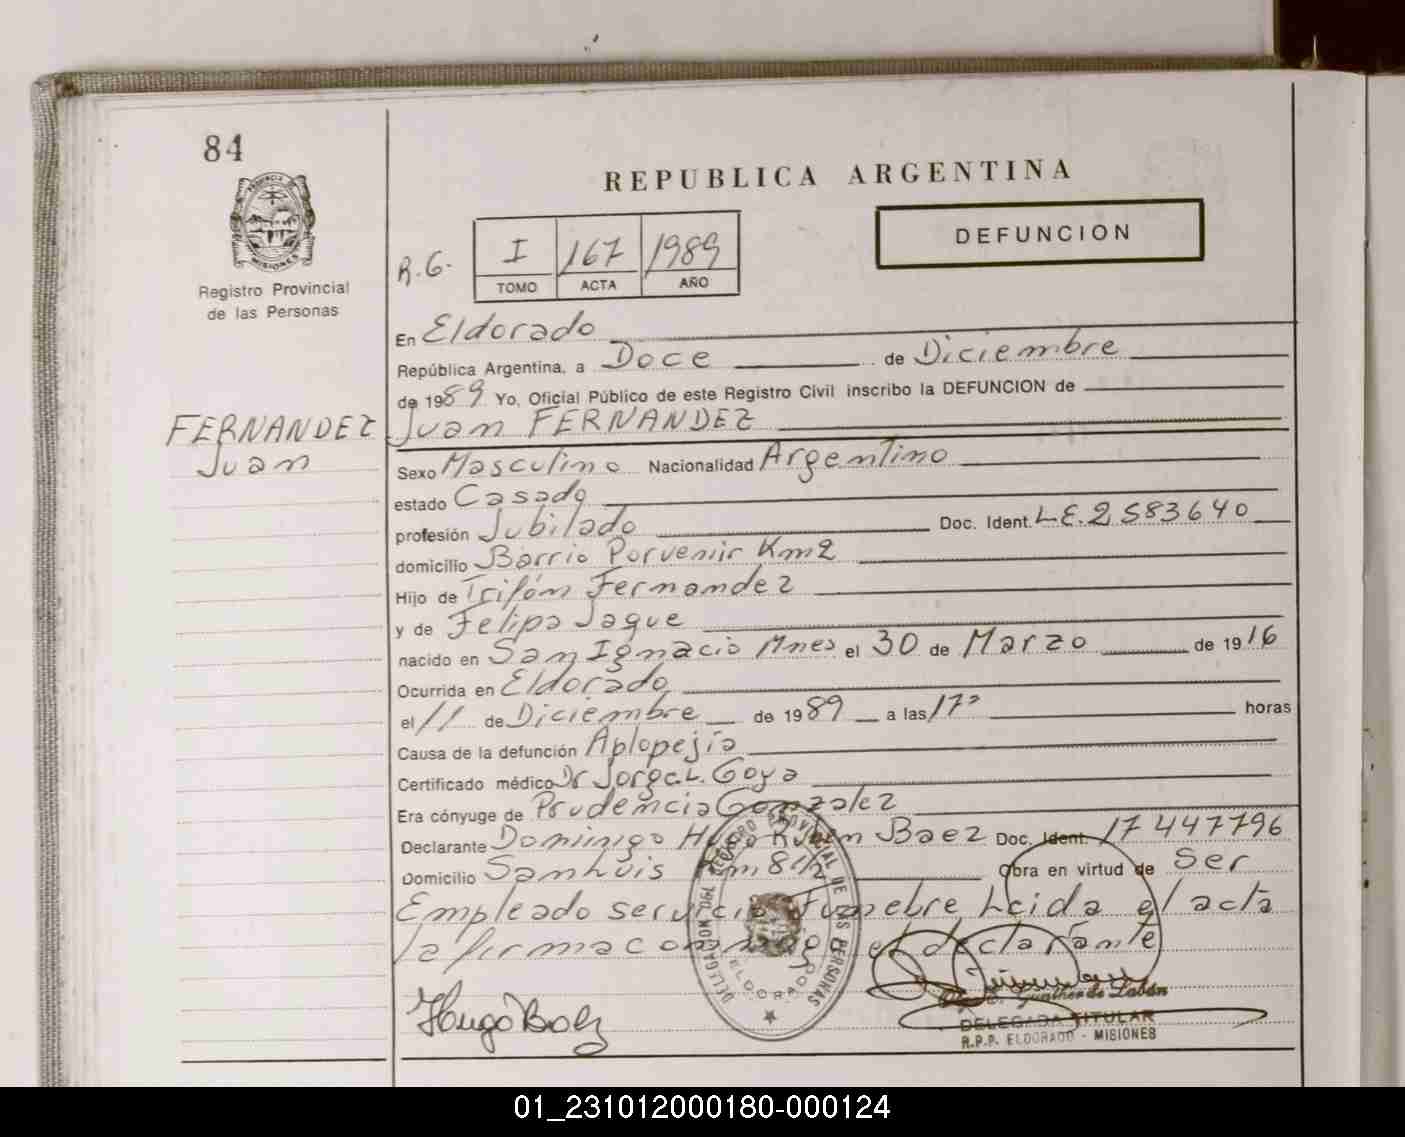 84
PROVINCIA DE
MISIONES
Registro Provincial
de las Personas
REPUBLICA ARGENTINA
DEFUNCION
R.G. I 167 1989
TOMO ACTA AÑO
En Eldorado
República Argentina, a Doce de Diciembre
de 1989 Yo, Oficial Público de este Registro Civil inscribo la DEFUNCION de
FERNANDEZ Juan
Juan FERNANDEZ
Sexo Masculino Nacionalidad Argentino
estado Casado
profesión Jubilado Doc. Ident. L.E. 2583640
domicilio Barrio Porvenir Km2
Hijo de Trifón Fernandez
y de Felipa Jaque
nacido en San Ignacio Mnes el 30 de Marzo de 1916
Ocurrida en Eldorado
el 11 de Diciembre de 1989 a las 17º horas
Causa de la defunción Aplopejía
Certificado médico Dr Jorge L. Goya
Era cónyuge de Prudencia Gonzalez
Declarante Domingo Hugo Ruben Baez Doc. Ident. 17447796
Domicilio San Luis Km 8 1/2 Obra en virtud de Ser
Empleado servicio Funebre Leida el acta
la firma conmigo el declarante
Hugo Baez
DELEGACION DEL REGISTRO PROVINCIAL DE LAS PERSONAS
ELDORADO
DELEGADA TITULAR
R.P.P. ELDORADO - MISIONES
01_231012000180-000124